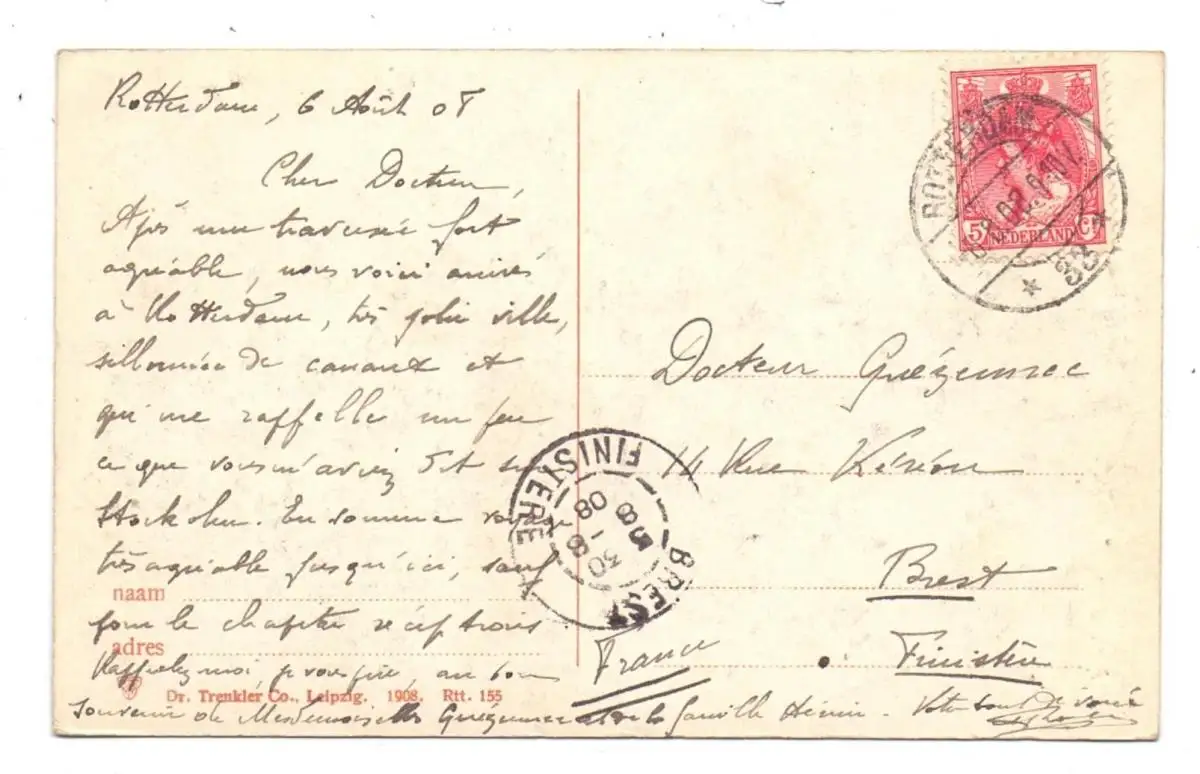 Rotterdam, 6 Août 08
Cher Docteur,
Après une traversée fort
agréable, nous voici arrivés
à Rotterdam, très jolie ville,
sillonnée de canaux et
qui me rappelle un peu
ce que vous m'aviez dit sur
Stockolm. En somme voyage
très agréable jusqu'ici, sauf
pour le chapitre réceptions.
Rappelez moi, je vous prie, au bon
souvenir de Mesdemoiselles Guézennec et de la famille
Votre tout dévoué
naam
adres
Dr. Trenkler Co., Leipzig. 1908. Rtt. 155
5 Ct
NEDERLAND
ROTTERDAM
33
Docteur Guézennec
14 Rue Kéréon
Brest
Finistère
France
BREST
FINISTERE
8 - 8
08